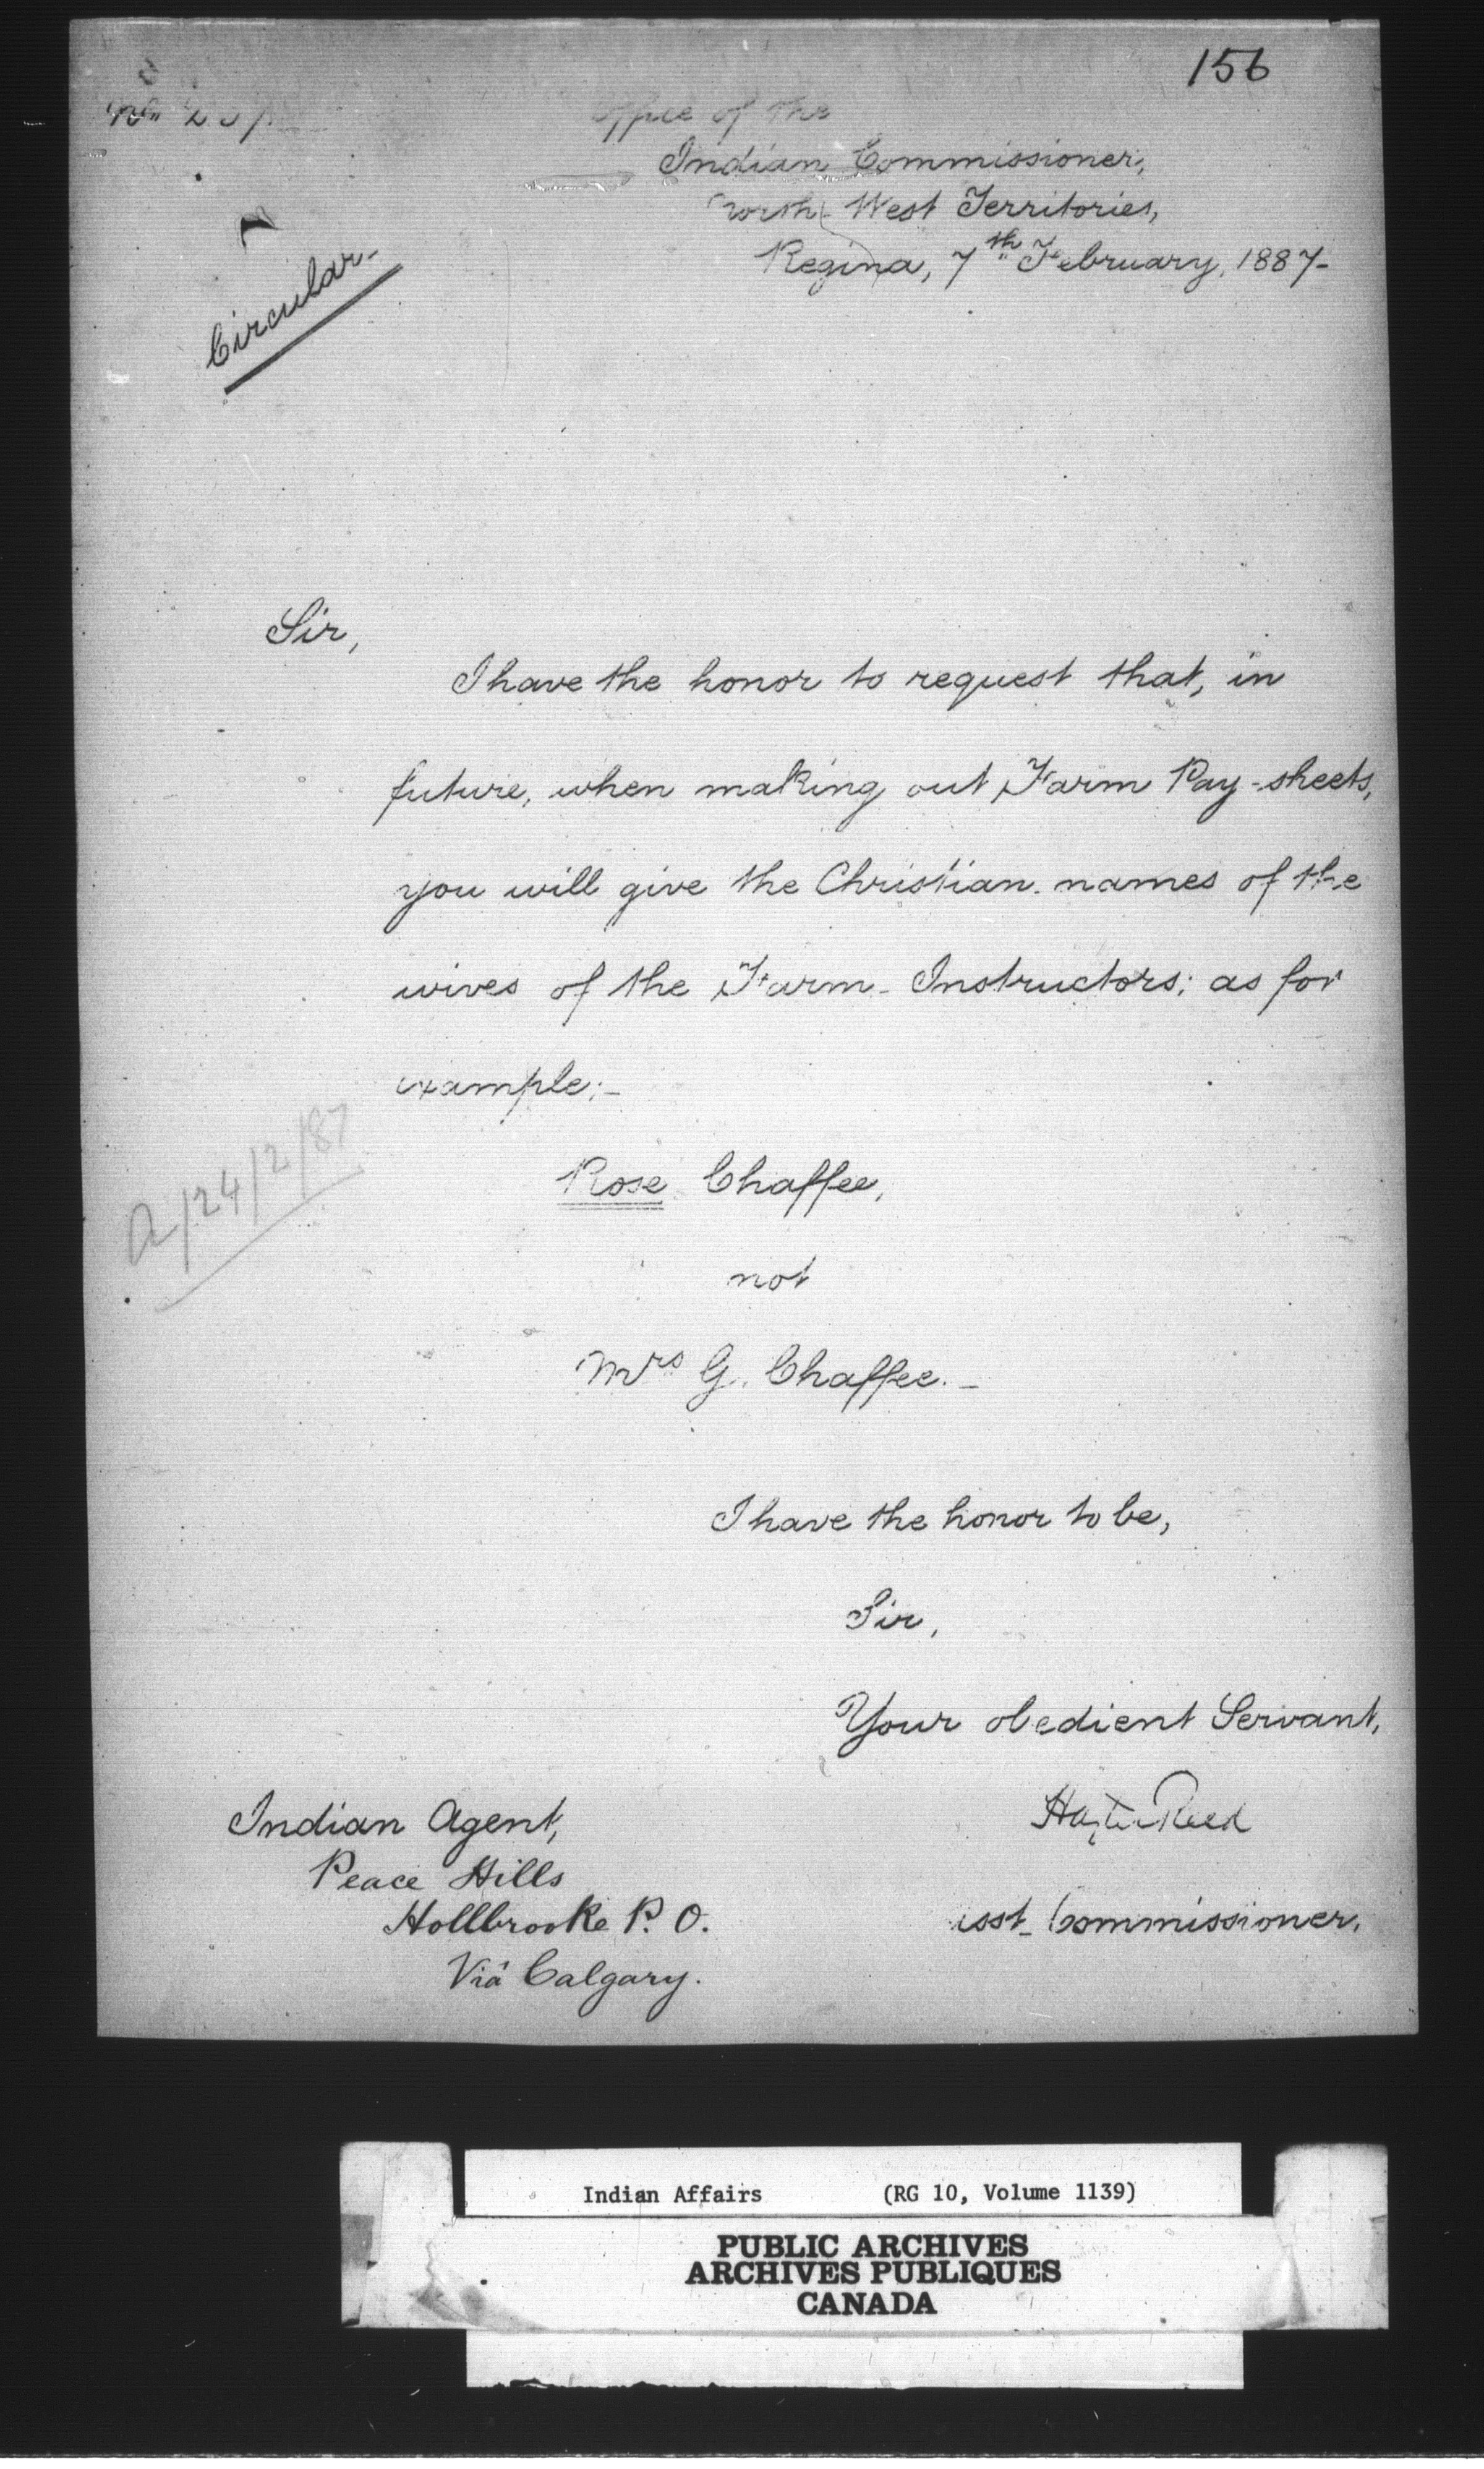 156
Office of the
Indian Commissioner,
North-West Territories,
Regina, 7th February, 1887-
Circular-
Sir,
I have the honor to request that, in
future, when making out Farm Pay-sheets,
you will give the Christian names of the
wives of the Farm-Instructors; as for
example:-
Rose Chaffee,
not
Mrs G. Chaffee.-
a/24/2/87
I have the honor to be,
Sir,
Your obedient Servant,
Hayter Reed
asst. Commissioner.
Indian Agent,
Peace Hills
Hollbrooke P.O.
Viâ Calgary.
Indian Affairs (RG 10, Volume 1139)
PUBLIC ARCHIVES
ARCHIVES PUBLIQUES
CANADA